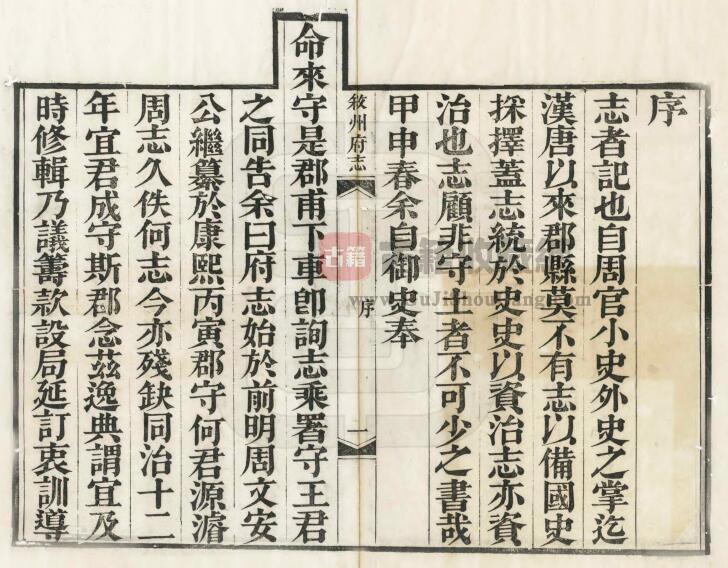 序
志者記也自周官小史外史之掌迄
漢唐以來郡縣莫不有志以備國史
採擇蓋志統於史史以資治志亦資
治也志顧非守土者不可少之書哉
甲申春余自御史奉
敘州府志
序
一
命來守是郡甫下車即詢志乘署守王君
之同告余曰府志始於前明周文安
公繼纂於康熙丙寅郡守何君源濬
周志久佚何志今亦殘缺同治十二
年宜君成守斯郡念茲逸典謂宜及
時修輯乃議籌款設局延訂衷訓導
古籍